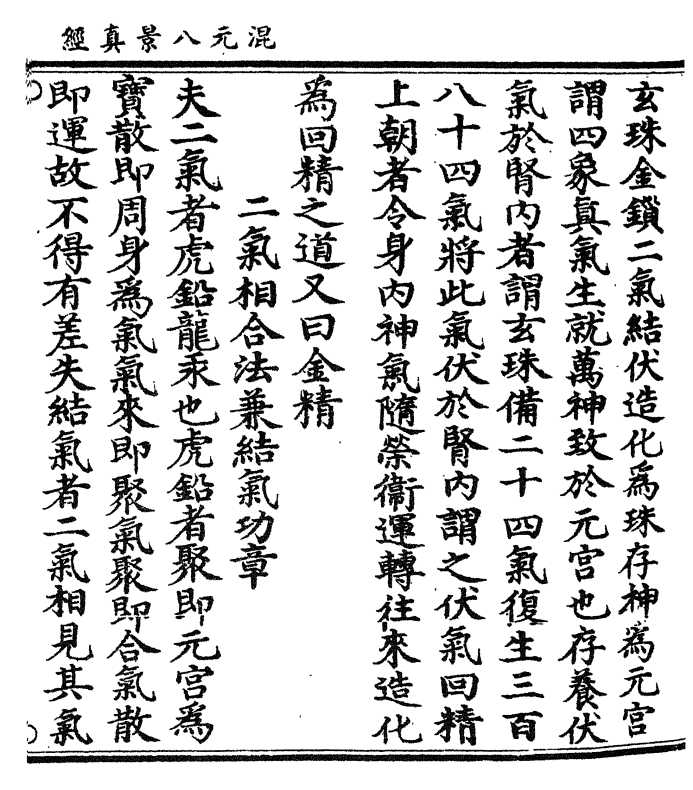 混元八景真經
玄珠金鎖二氣結伏造化爲珠存神爲元宫
謂四象真氣生就萬神致於元宫也存養伏
氣於腎内者謂玄珠備二十四氣復生三百
八十四氣將此氣伏於腎内謂之伏氣回精
上朝者令身内神氣隨榮衛運轉往來造化
爲回精之道又曰金精
二氣相合法兼結氣功章
夫二氣者虎鉛龍汞也虎鉛者聚即元宫爲
寶散即周身爲氣氣來即聚氣聚即合氣散
即運故不得有差失結氣者二氣相見其氣